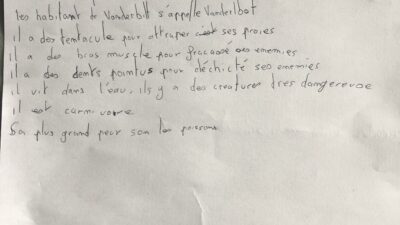 les habitant de Vanderbolt s'appelle Vanderlbot
il a des tentacule pour attraper ses proies
il a des bras muscle pour fracassé ses enemies
il a des dents pointus pour déchicté ses enemies
il vit dans l'eau, ils y a des creature très dangereuse
il est carnivore
Sa plus grand peur son les poissons